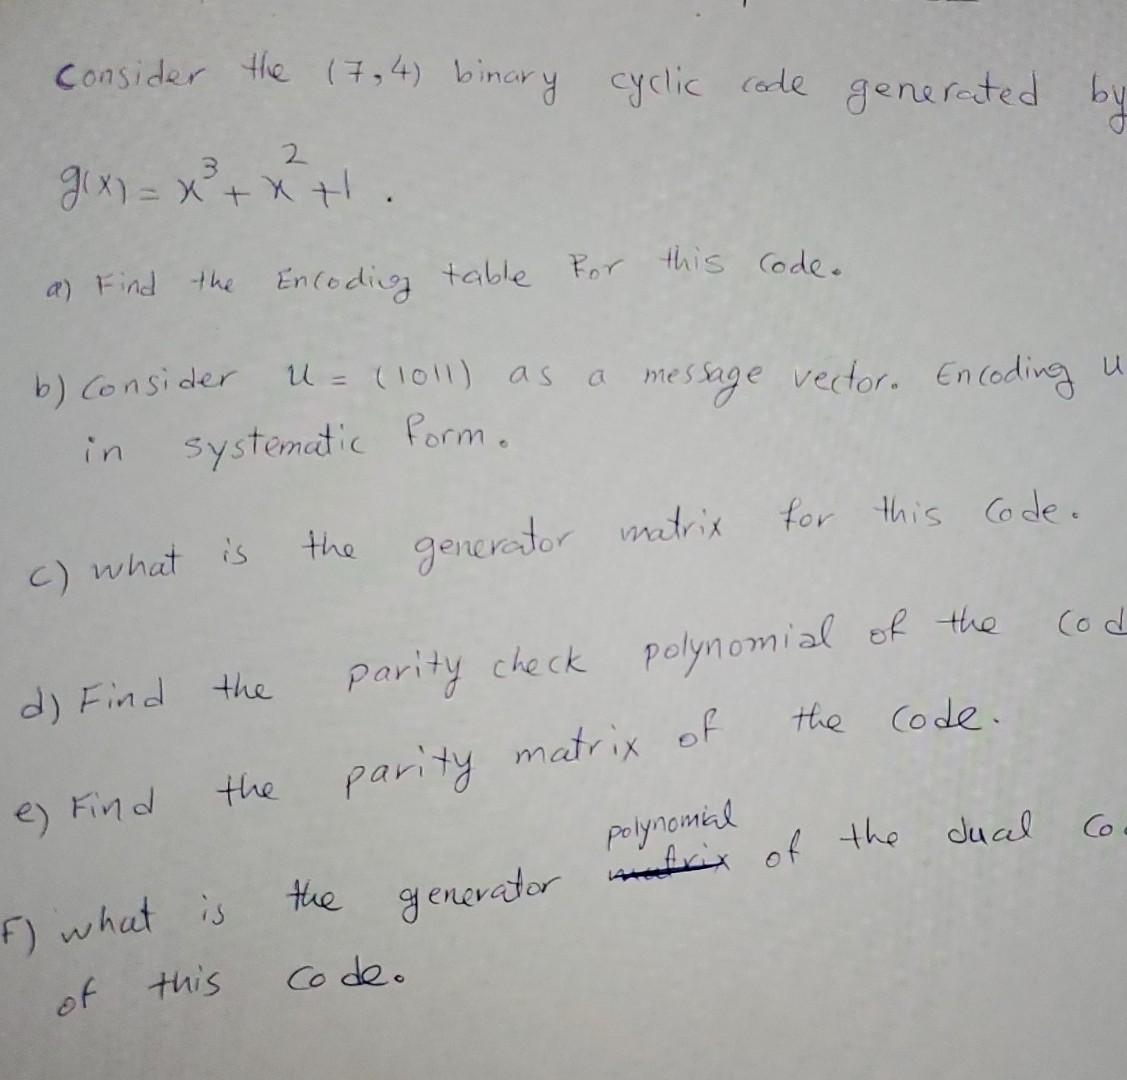 Consider the (7,4) binary cyclic code generated by
g(x) = x³ + x² + 1 .
a) Find the Encoding table For this code.
b) Consider u = (1011) as a message vector. Encoding u
in systematic form.
c) what is the generator matrix for this code.
d) Find the parity check polynomial of the cod
e) Find the parity matrix of the code.
f) what is the generator polynomial of the dual co
of this code.